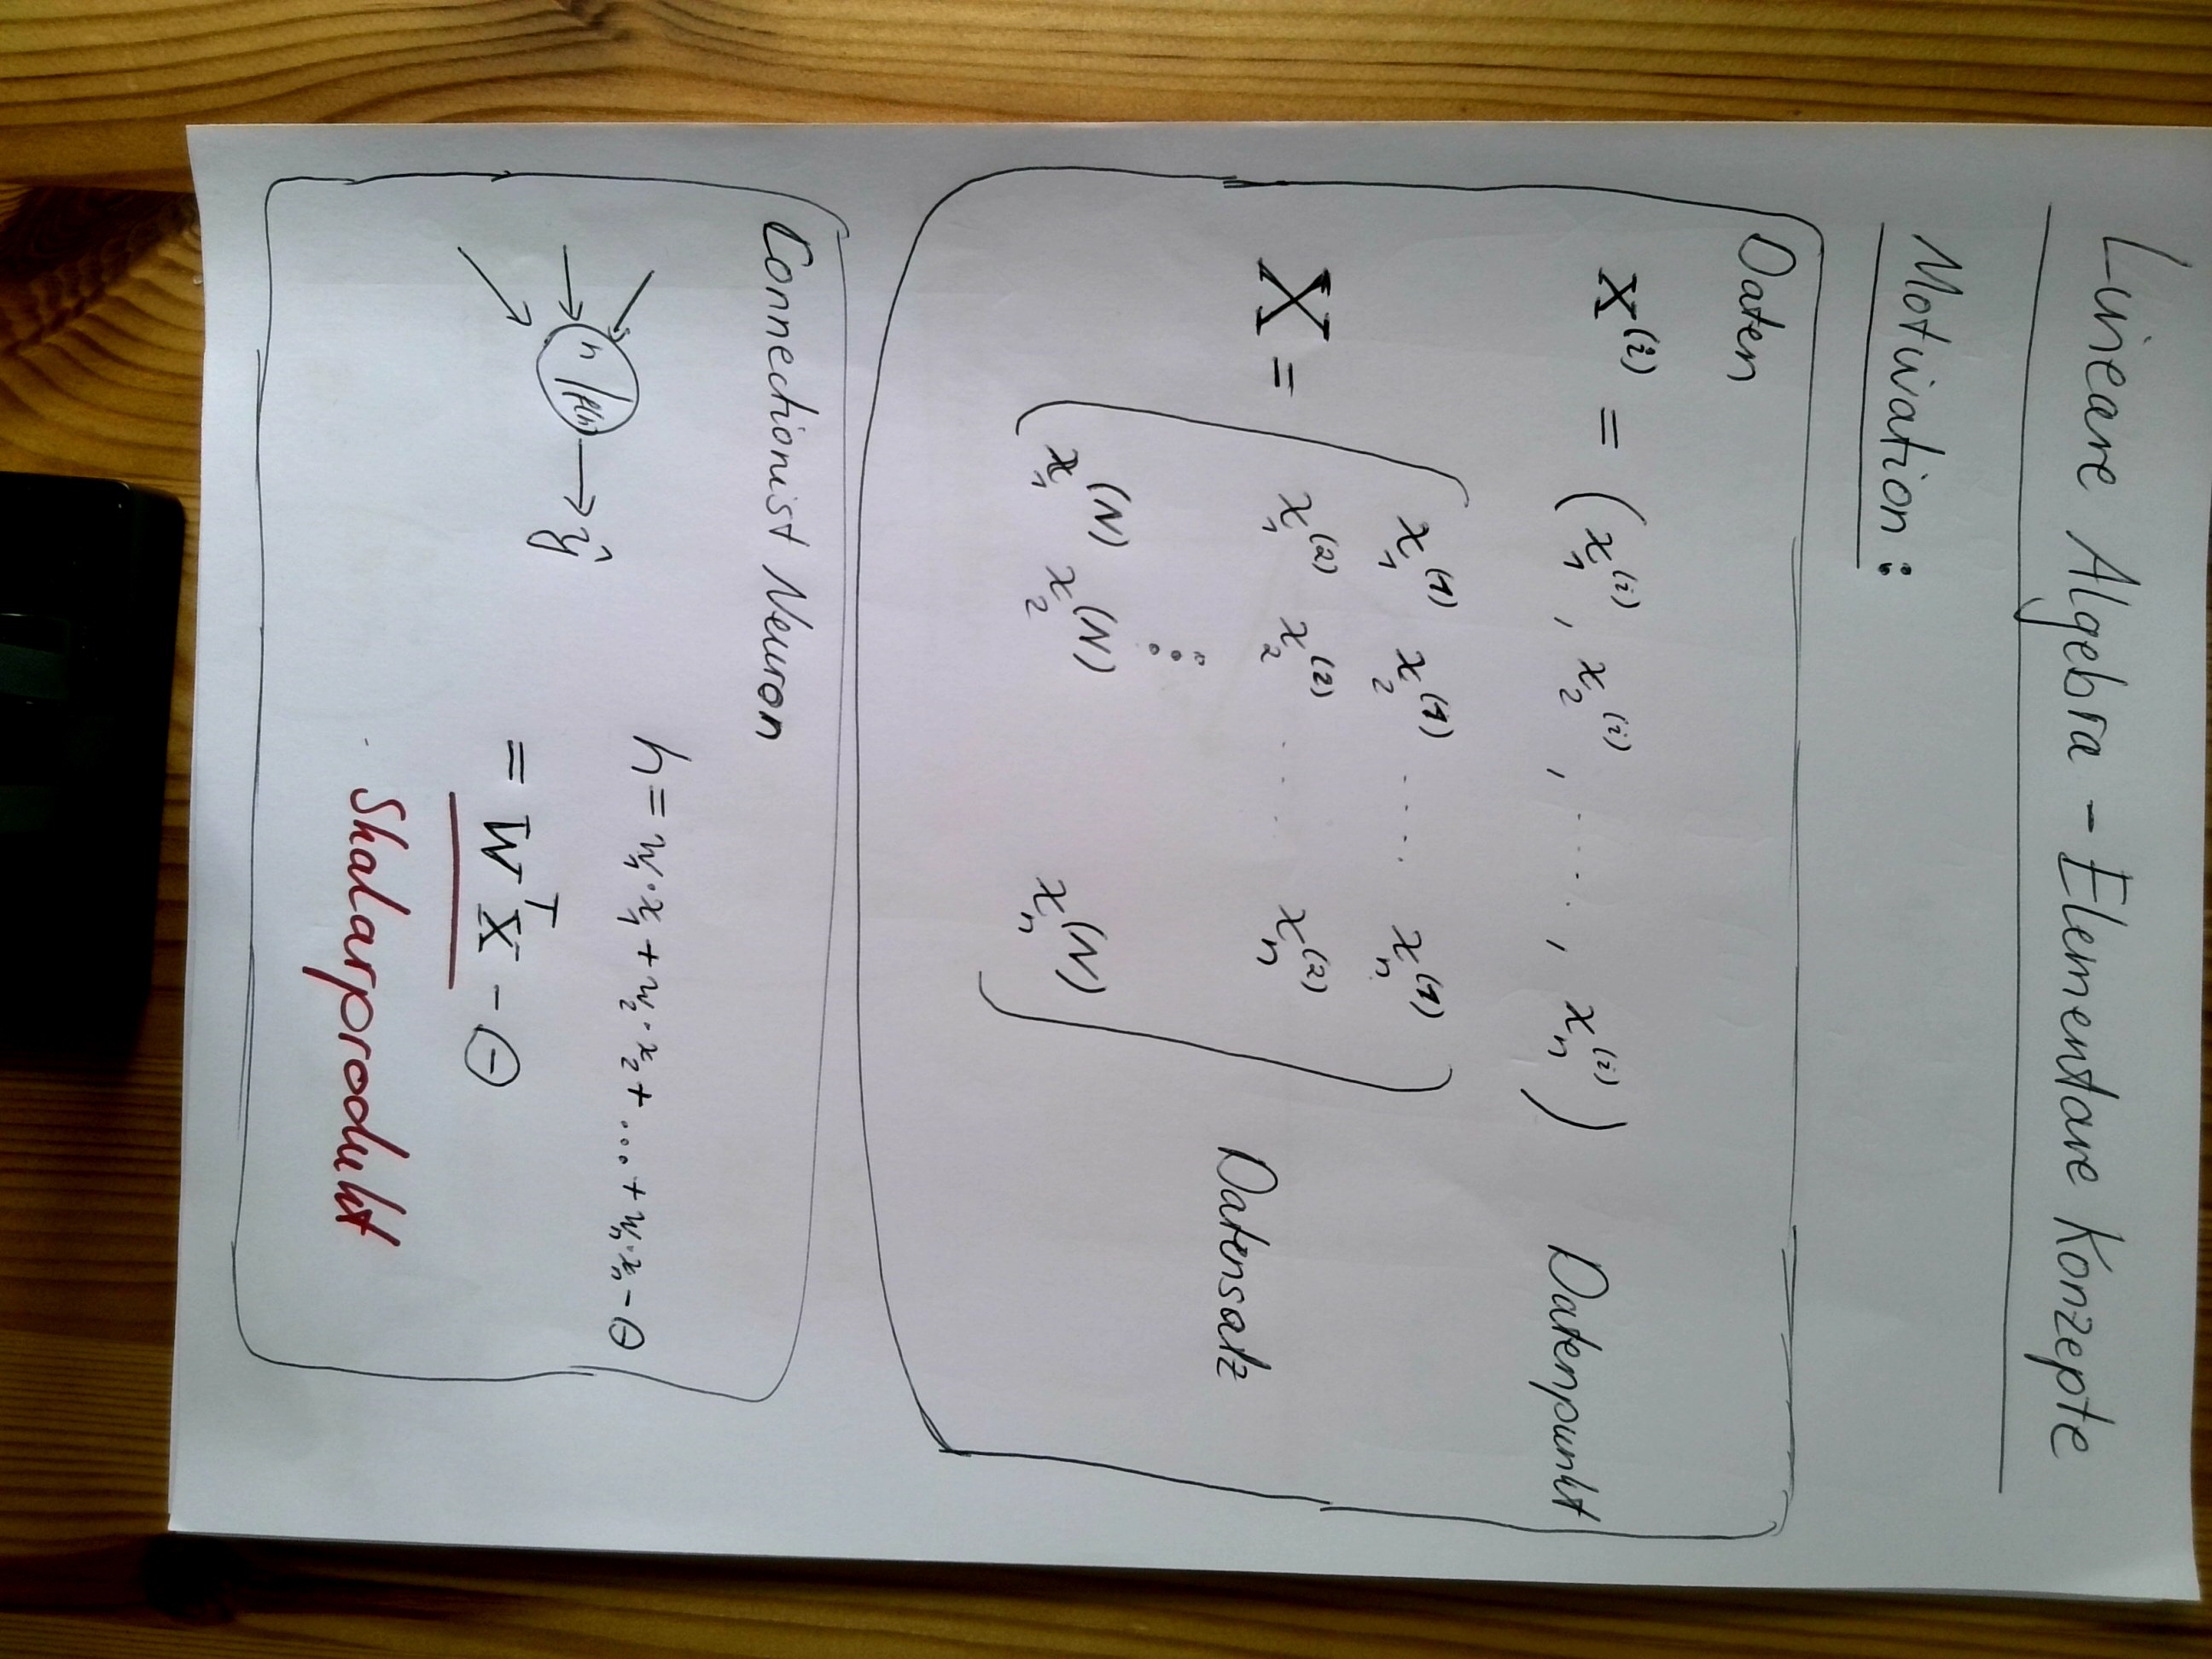 Lineare Algebra - Elementare Konzepte
Motivation:
Daten
x^(i) = (x_1^(i), x_2^(i), ....., x_n^(i)) Datenpunkt
X = ( x_1^(1) x_2^(1) .... x_n^(1)
x_1^(2) x_2^(2) .... x_n^(2)
⋮
x_1^(N) x_2^(N) x_n^(N) ) Datensatz
Connectionist Neuron
h | f(h) → ŷ
h = w_1·x_1 + w_2·x_2 + .... + w_n·x_n - Θ
= W^T X - Θ
Skalarprodukt